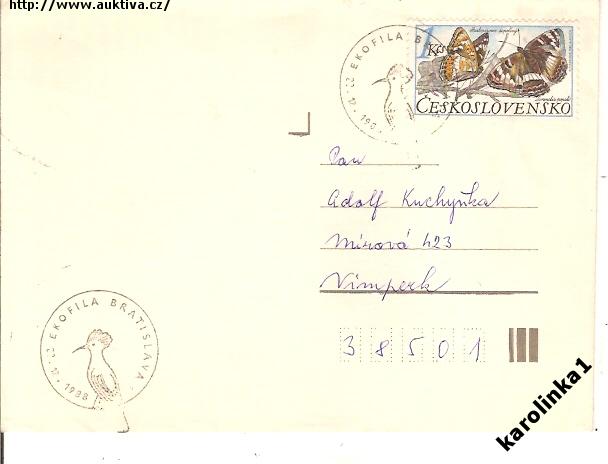 http://www.auktiva.cz/
EKOFILA B
1 Kčs
ČESKOSLOVENSKO
Pan
Adolf Kuchyňka
Mírová 423
Vimperk
38501
EKOFILA BRATISLAVA
1988
karolinka1